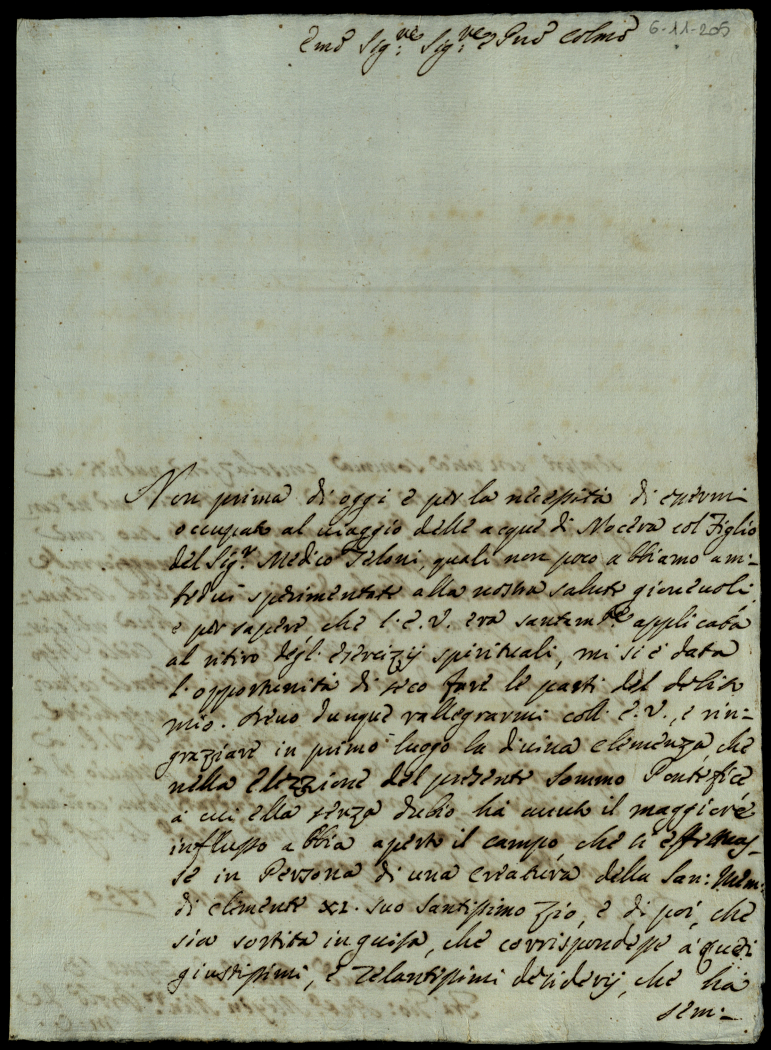 6-11-205
Emo Sig:re Sig:re e Pne Colmo
Non prima di oggi e per la necessità di essermi
occupato al viaggio delle acque di Nocera col Figlio
del Sig:r Medico Teloni, quali non poco abbiamo am:-
bedui sperimentate alla nostra salute giovevoli,
e per sapere, che l'E.V. era santam:te applicata
al ritiro degl'esercizij spirituali, mi si è data
l'opportunità di seco fare le parti del debito
mio. Devo dunque rallegrarmi coll'E.V., e rin-
graziare in primo luogo la divina clemenza, che
nella Elezzione del presente Sommo Pontefice
a cui ella senza dubio hà avuto il maggiore
influsso abbia aperto il campo, che si effettuas-
se in Persona di una creatura della San: Mem:
di Clemente XI. suo Santissimo Zio, e di poi, che
sia sortita in guisa, che corrispondesse a quei
giustissimi, e zelantissimi desiderij, che hà
sem:-